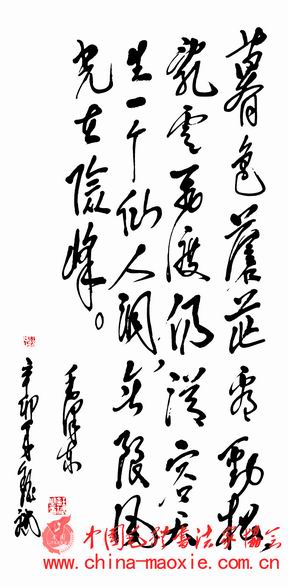 暮色蒼茫看勁松
亂雲飛渡仍從容天
生一个仙人洞,無限風
光在險峰。
毛澤東
辛卯年
中國毛體書法家協會
www.china-maoxie.com.cn